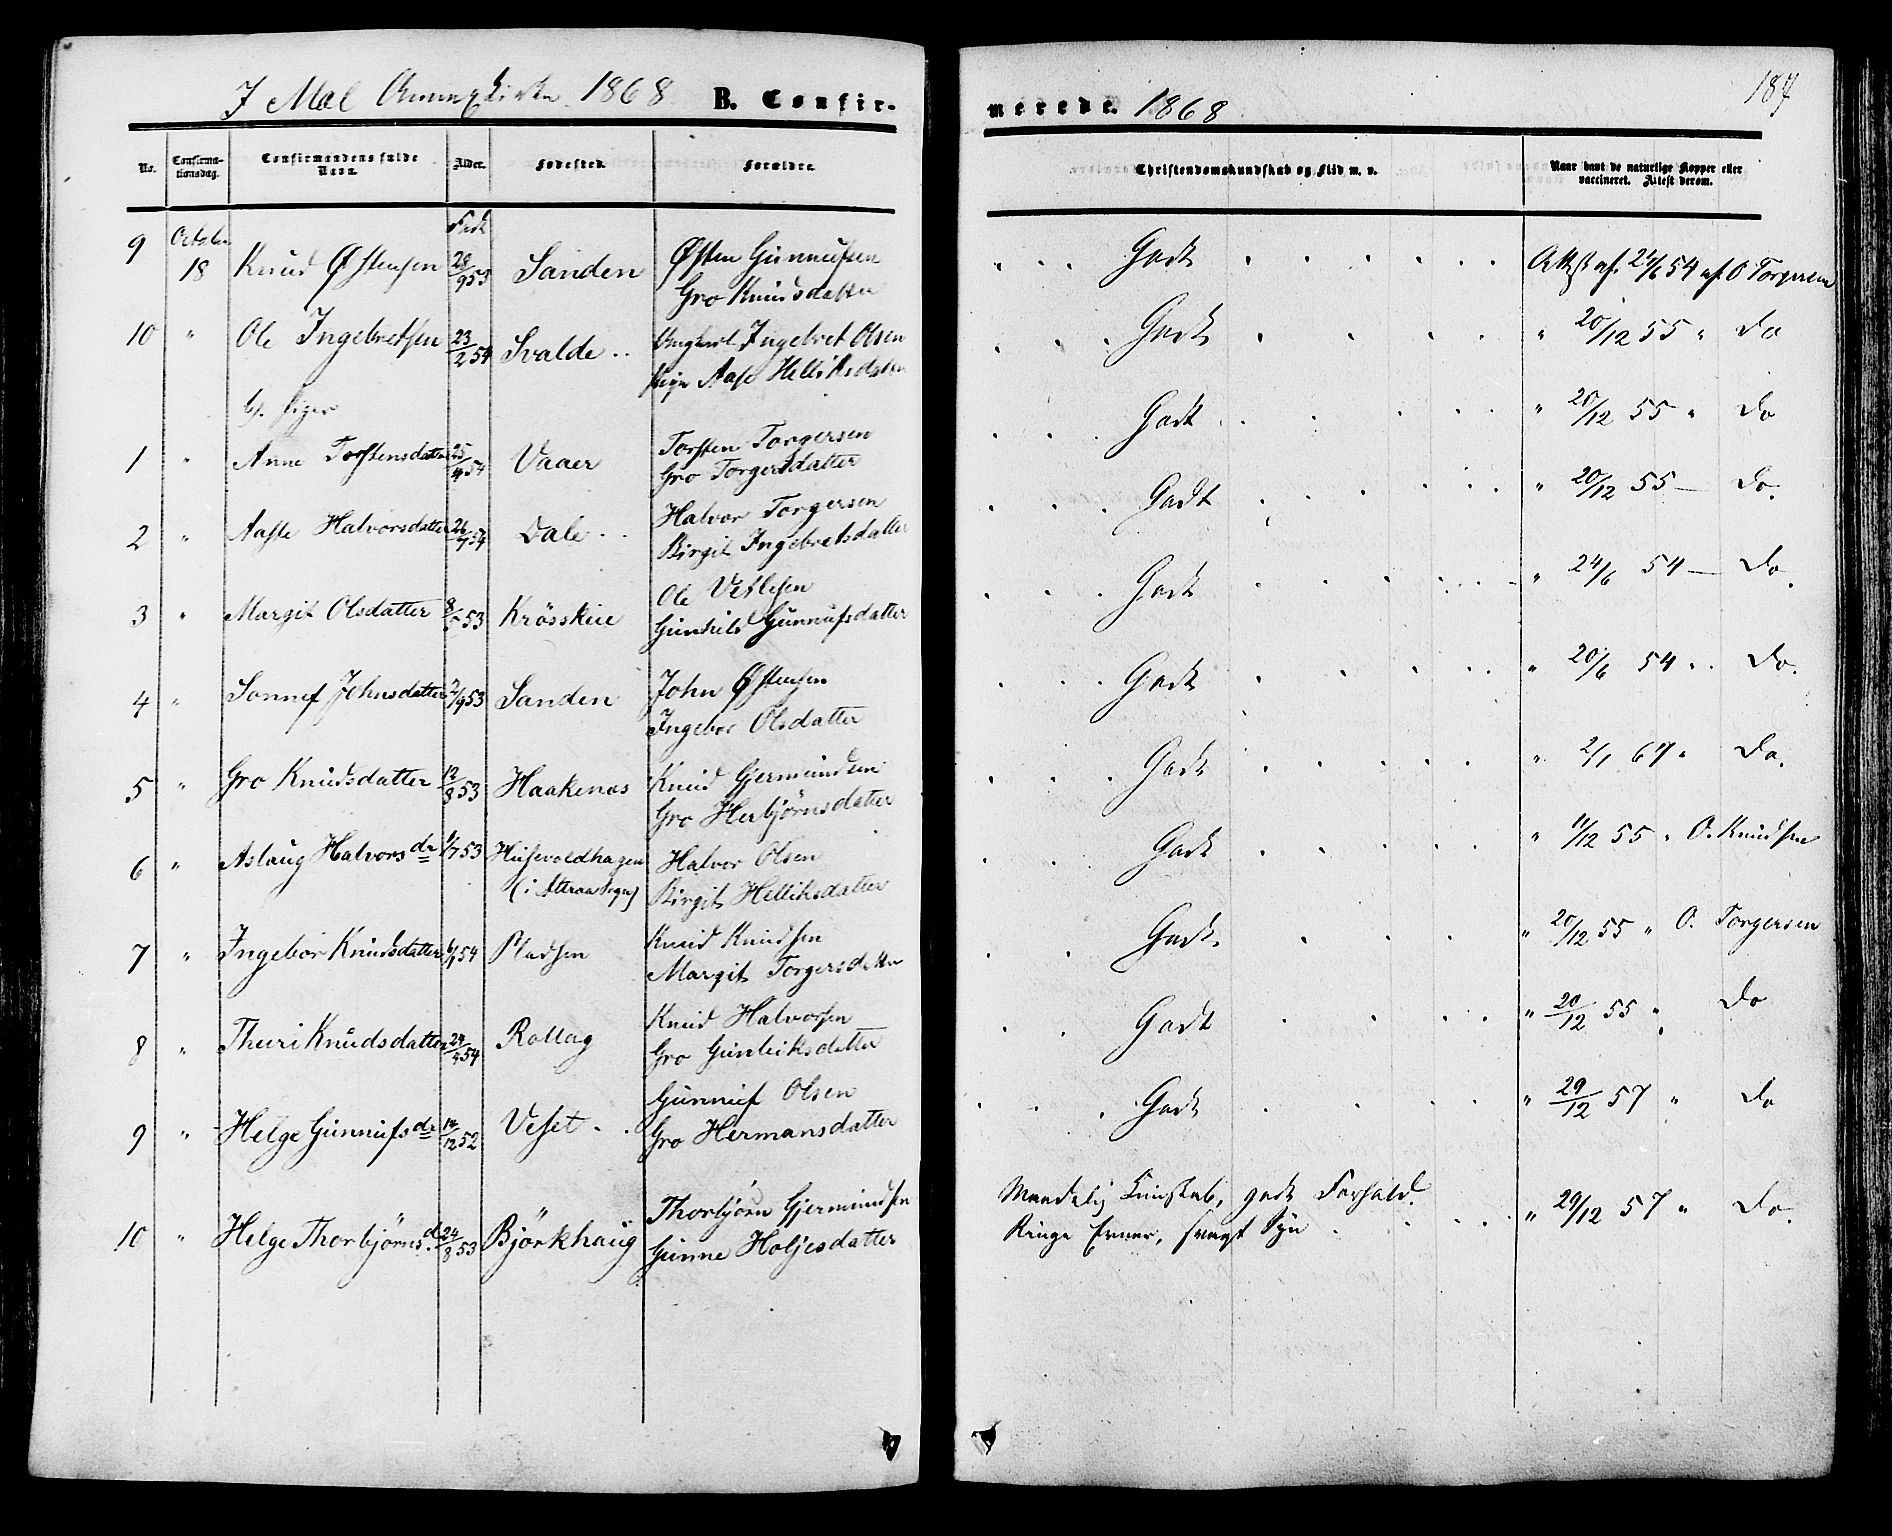 I Mæl Annexkirke 1868 B. Confir-
merede. 1868
187
No.
Confirma-
tionsdag.
Confirmandens fulde
Navn.
Alder.
Fødested.
Forældre.
Christendomskundskab og Flid m. v.
Naar havt de naturlige Kopper eller
vaccineret. Attest derom.
9 October 18 Knud Østensen Født 28/9 53 Sanden Østen Gunnufsen
Gro Knudsdatter
Godt Attest af 24/6 54 af O Torgersen
10 " Ole Ingebretsen 23/2 54 Svalde Ungkarl Ingebret Olsen
Pige Aase Helliksdatter
Godt " 20/12 55 " Do
b). Piger
1 " Anne Torstensdatter 25/4 54 Vaaer Torsten Torgersen
Gro Torgersdatter
Godt " 20/12 55 " Do
2 " Aaste Halvorsdatter 26/7 54 Dale Halvor Torgersen
Birgit Ingebretsdatter
Godt " 20/12 55 — Do.
3 " Margit Olsdatter 8/5 53 Krösskie Ole Vetlesen
Gunhild Gunnufsdatter
Godt " 24/6 54 — Do.
4 " Sonnef Johnsdatter 2/9 53 Sanden John Østensen
Ingebor Olsdatter
Godt " 20/6 54 Do.
5 " Gro Knudsdatter 12/8 53 Haakenæs Knud Gjermundsen
Gro Herbjörnsdatter
Godt " 2/1 67 " Do.
6 " Aslaug Halvorsdr 1/7 53 Husevoldhagen
(i Attraa Sogn)
Halvor Olsen
Birgit Helliksdatter
Godt " 11/12 55 " O. Knudsen
7 " Ingebor Knudsdatter 6/1 54 Pladsen Knud Knudsen
Margit Torgersdatter
Godt. " 20/12 55 " O. Torgersen
8 " Thuri Knudsdatter 24/4 54 Rollag Knud Halvorsen
Gro Gunleiksdatter
Godt " 20/12 55 " Do
9 " Helge Gunnufsdr 14/12 52 Veset Gunnuf Olsen
Gro Hermansdatter
Godt " 29/12 57 " Do
10 " Helge Thorbjörnsd. 24/8 53 Björkhaug Thorbjörn Gjermundsen
Gunne Holjesdatter
Maadelig Kundskab, godt Forhold.
Ringe Evner, svagt Syn " 29/12 57 " Do.